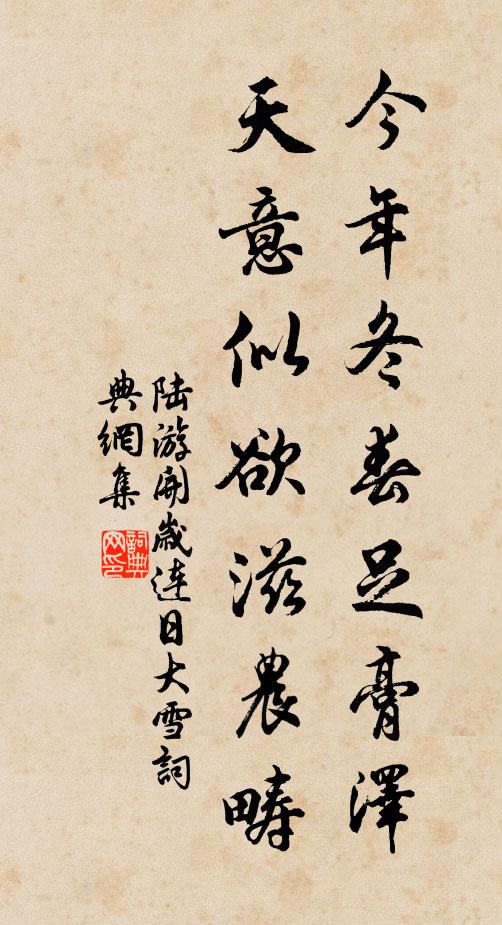 今年冬春足膏澤
天意似欲滋農疇
陆游開歲連日大雪詞
典網集
詞典網印